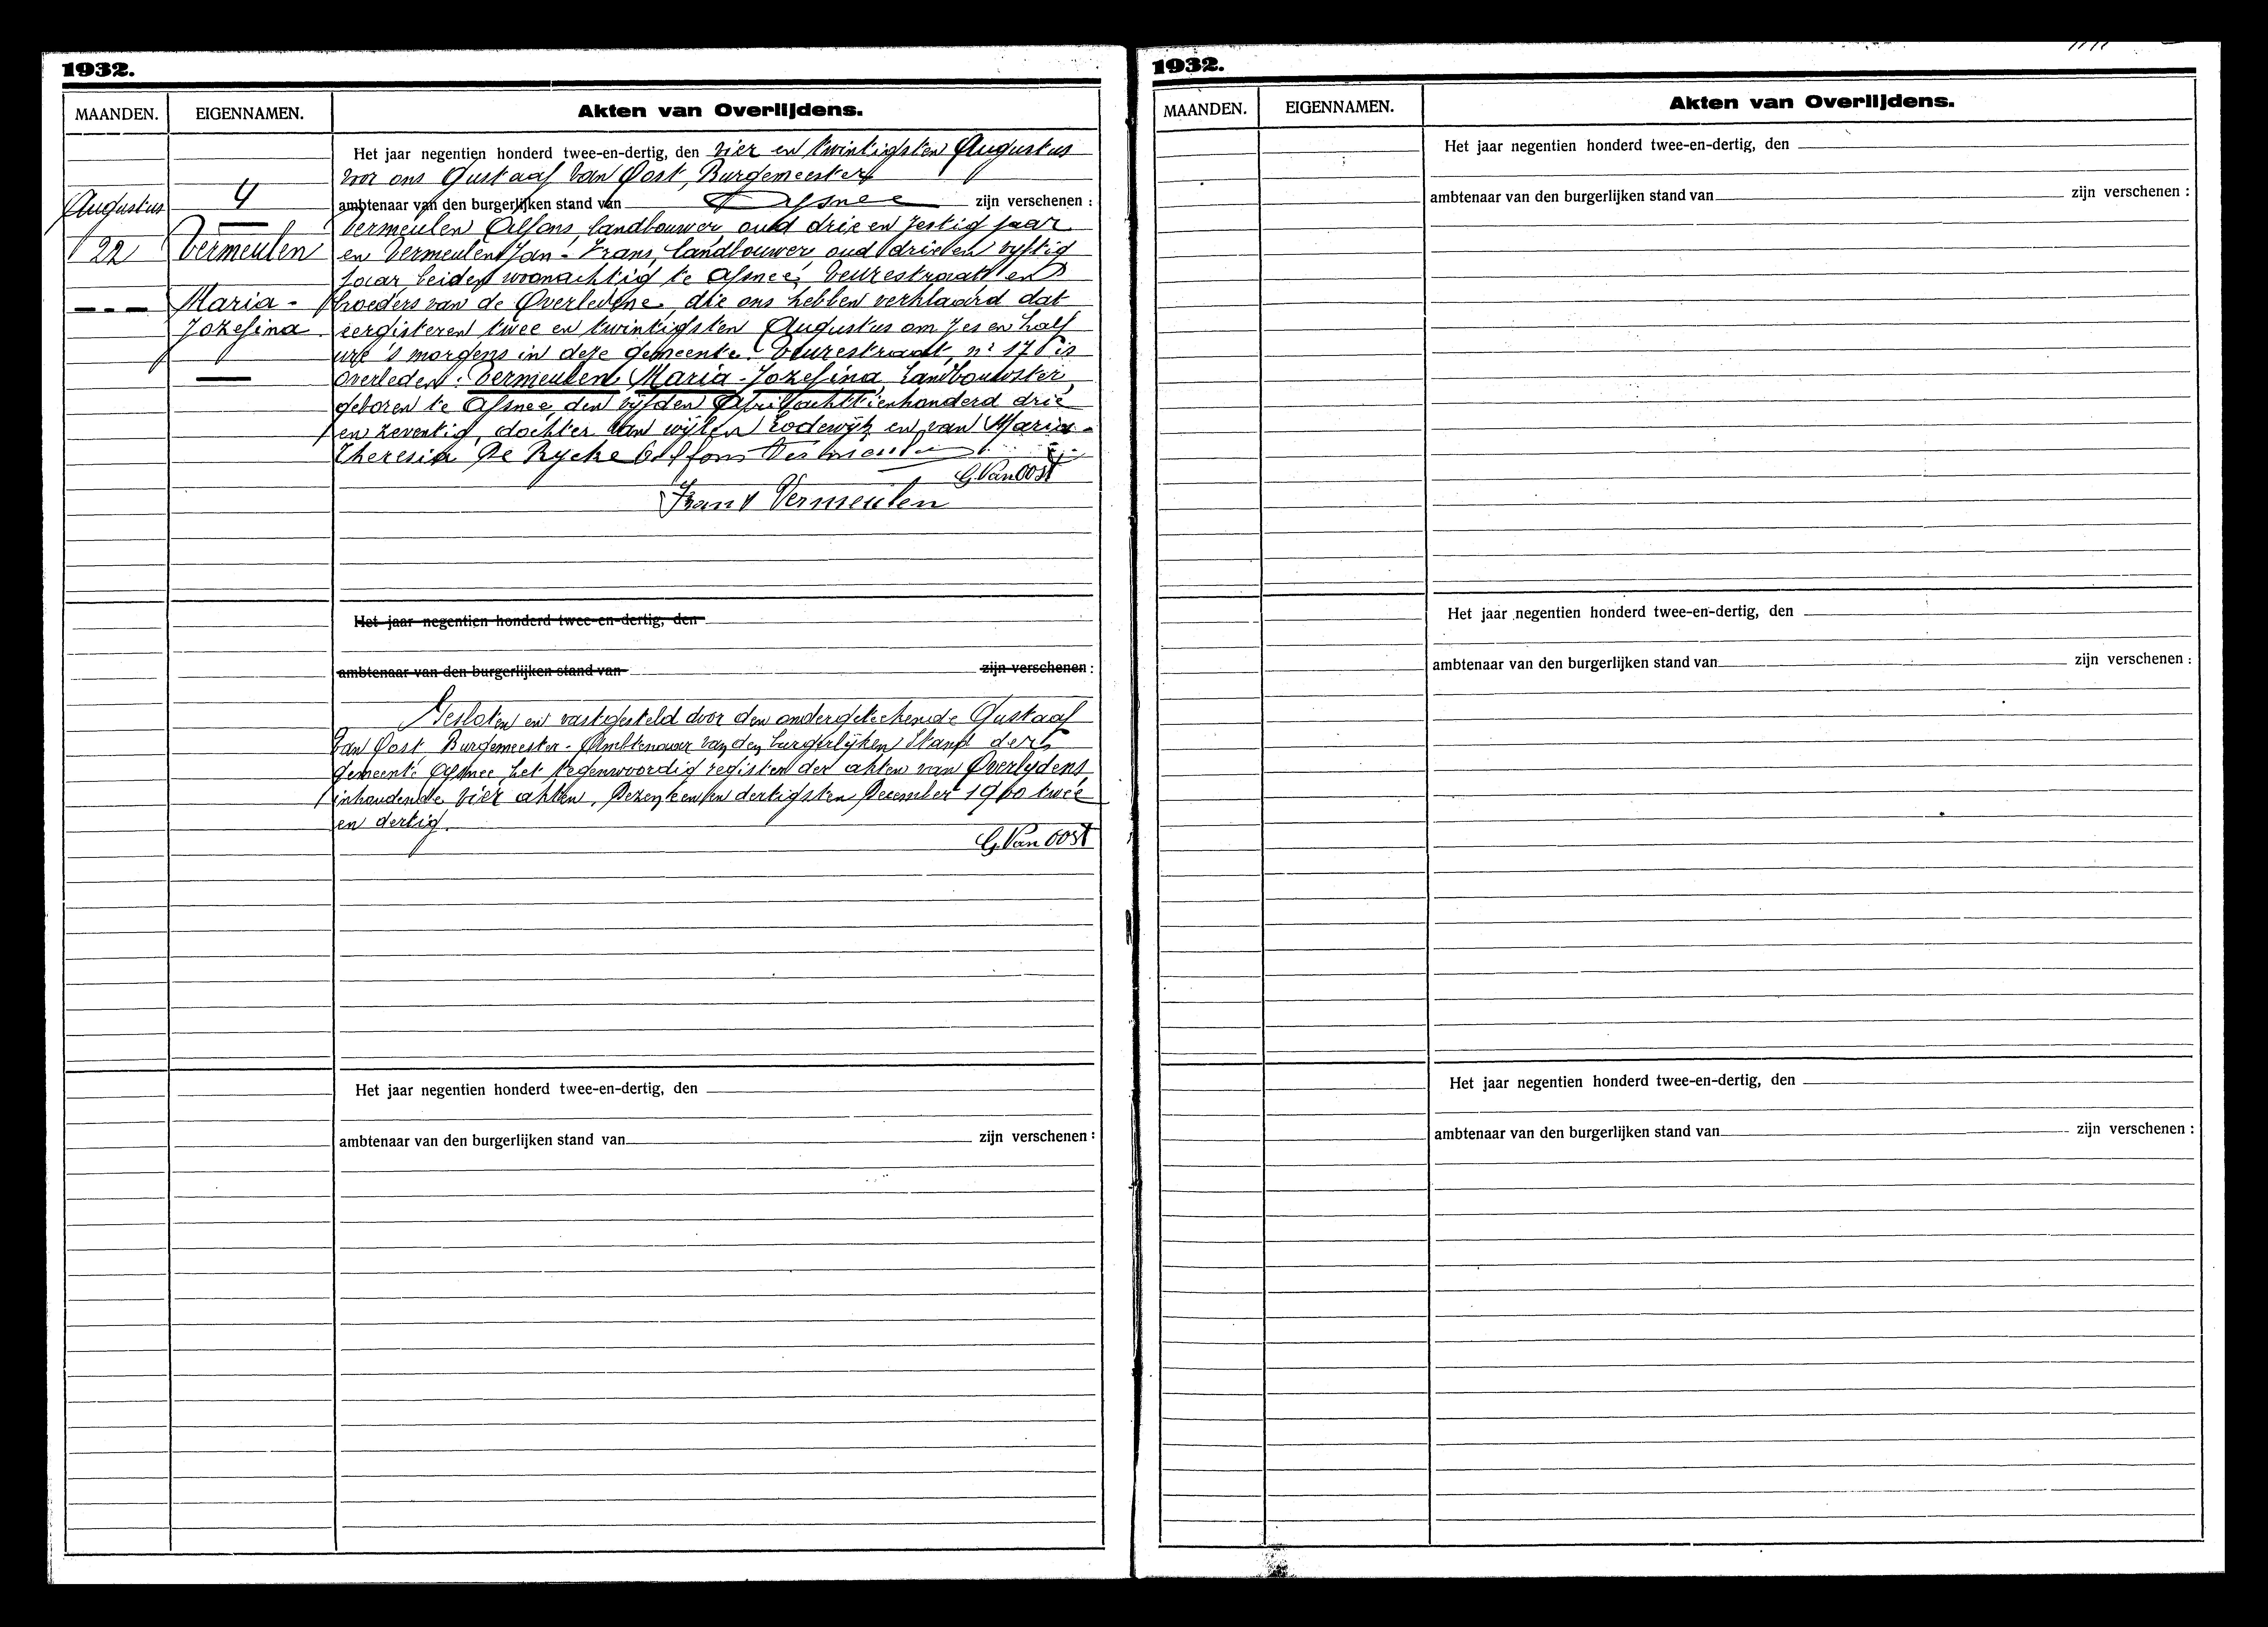 1932.
MAANDEN. EIGENNAMEN. Akten van Overlijdens.
Het jaar negentien honderd twee-en-dertig, den vier en twintigsten Augustus
voor ons Gustaaf Van Oost, Burgemeester
ambtenaar van den burgerlijken stand van Afsnee zijn verschenen :
Augustus
22
4
Vermeulen
Maria-
Jozefina
Vermeulen Alfons, landbouwer oud drie en zestig jaar
en Vermeulen Jan-Frans, landbouwer oud drie en vyftig
jaar, beiden woonachtig te Afsneé, Veurestraat en
broeders van de Overledene, die ons hebben verklaard dat
eergisteren twee en twintigsten Augustus om zes en half
ure 's morgens in deze gemeente, Veurestraat, nr 17 is
overleden: Vermeulen Maria-Jozefina, Landbouwster,
geboren te Afsnee, den vijfden April achttienhonderd drie
en zeventig, dochter van wijlen Lodewijk en van Maria-
Theresia De Rycke Alfons Vermeulen
G. Van Oost
Frans Vermeulen
Het jaar negentien honderd twee-en-dertig, den
ambtenaar van den burgerlijken stand van zijn verschenen :
Gesloten en vastgesteld door den ondergeteekende Gustaaf
Van Oost, Burgemeester-Ambtenaar van den burgerlijken Stand der
gemeente Afsnee, het tegenwoordig register der akten van Overlydens,
inhoudende vier akten, Dezen een en dertigsten December 1900 twee
en dertig.
G. Van Oost
Het jaar negentien honderd twee-en-dertig, den
ambtenaar van den burgerlijken stand van zijn verschenen :
1932.
MAANDEN. EIGENNAMEN. Akten van Overlijdens.
Het jaar negentien honderd twee-en-dertig, den
ambtenaar van den burgerlijken stand van zijn verschenen :
Het jaar negentien honderd twee-en-dertig, den
ambtenaar van den burgerlijken stand van zijn verschenen :
Het jaar negentien honderd twee-en-dertig, den
ambtenaar van den burgerlijken stand van zijn verschenen :